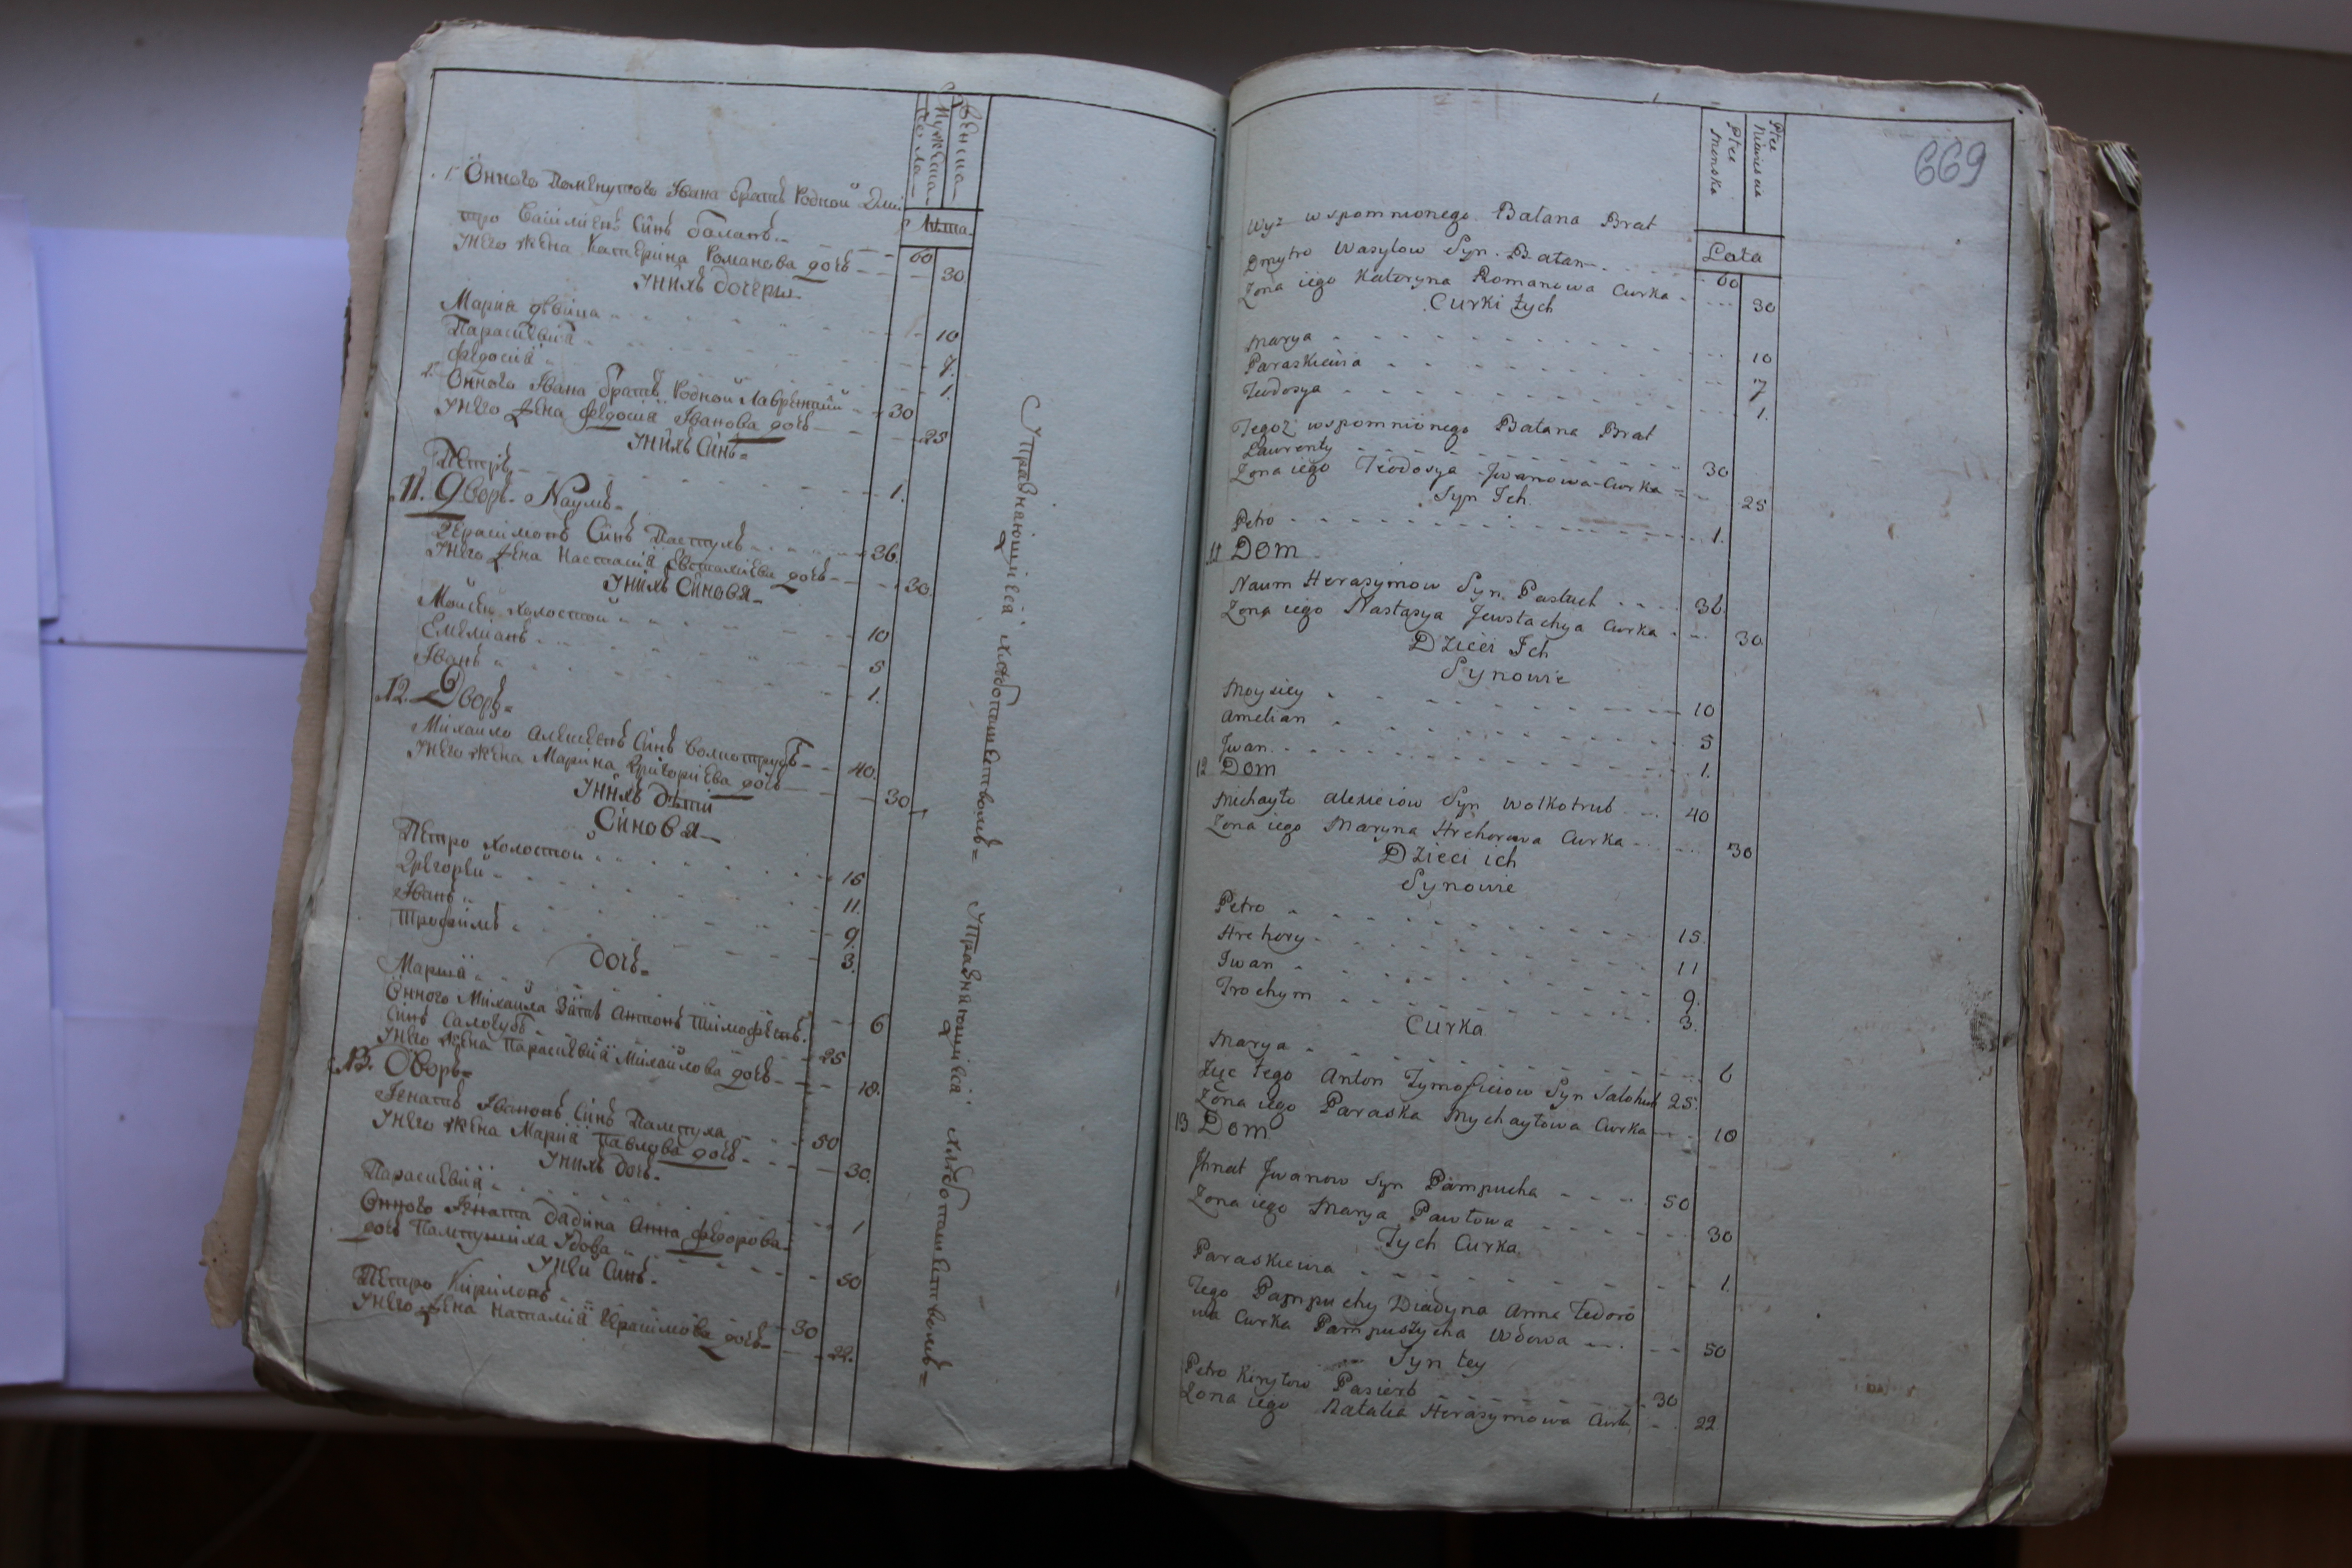 Женска
Мужеска
Пола
Лѣта
1. Онного Помѣнутого Ивана братъ Родной Дми
тро Василиевъ Синъ баланъ 60
Унего жена Катерина Романова дочь 30
Унихъ дочеры
Мария девица 10
Параскевия 7.
Федосия 1.
2. Онного Ивана братъ Родной Лаврентий 30
Унего жена Федосия Иванова дочь 25
Унихъ Синъ
Петръ 1.
11. Дворъ Наумъ
Герасимовъ Синъ Пастухъ 36.
Унего жена Настасия Евстахиева дочь 30.
Унихъ Синовя
Мойсей холостой 10
Емелианъ 5
Иванъ 1.
12. Дворъ
Михайло Алексеевъ Синъ Волкотрубъ 40.
Унего жена Марина Григориева дочь 30
Унихъ дѣти
Синовя
Петро холостой 15
Грегорей 11.
Иванъ 9.
Трофимъ 3.
дочь
Мария 6
Онного Михайла Зять Антонъ Тимофеевъ
Синъ Салогубъ 25
Унего жена Параскевия Михайлова дочь 18.
13. Дворъ
Игнатъ Ивановъ Синъ Пампуха 50
Унего жена Мария Павлова дочь 30.
Унихъ дочь
Параскевия 1
Онного Игната дядина Анна Федорова
дочь Пампушиха Удова 50
Унеи Синъ
Петро Кириловъ 30
Унего жена Наталия Герасимова дочь 22.
Упражняющийся хлѣбопашествомъ
Упражняющийся хлѣбопашествомъ
669
Płce Niewiescia
Płce Menska
Lata
Wyż wspomnionego Bałana Brat
Dmytro Wasylow Syn Bałan 60
Zona iego Kateryna Romanowa Curka 30
Curki tych
Marya 10
Paraskiewia 7
Fedosya 1.
Tegoż wspomnionego Bałana Brat
Lawrenty 30
Zona iego Teodosya Jwanowa Curka 25
Syn Ich
Petro 1.
11 Dom
Naum Herasymow Syn Pastuch 36
Zona iego Nastasya Jewstachya Curka 30
Dzieci Ich
Synowie
Moysiey 10
Amelian 5
Jwan 1.
12 Dom
Michayło Alexieiow Syn Wolkotrub 40
Zona iego Maryna Hrehorowa Curka 30
Dzieci ich
Synowie
Petro 15
Hrehory 11
Iwan 9.
Trochym 3.
Curka
Marya 6
Zięc tego Anton Tymofieiow Syn Salohub 25.
Zona iego Paraska Mychayłowa Curka 18
13 Dom
Jhnat Jwanow Syn Pampucha 50
Zona iego Marya Pawłowa 30
Tych Curka
Paraskiewia 1.
Tego Pampuchy Diadyna Anna Fedoro
wa Curka Pampuszycha Wdowa 50
Syn tey
Petro Kiryłow Pasierb 30
Zona iego Natalia Herasymowa Curka 22